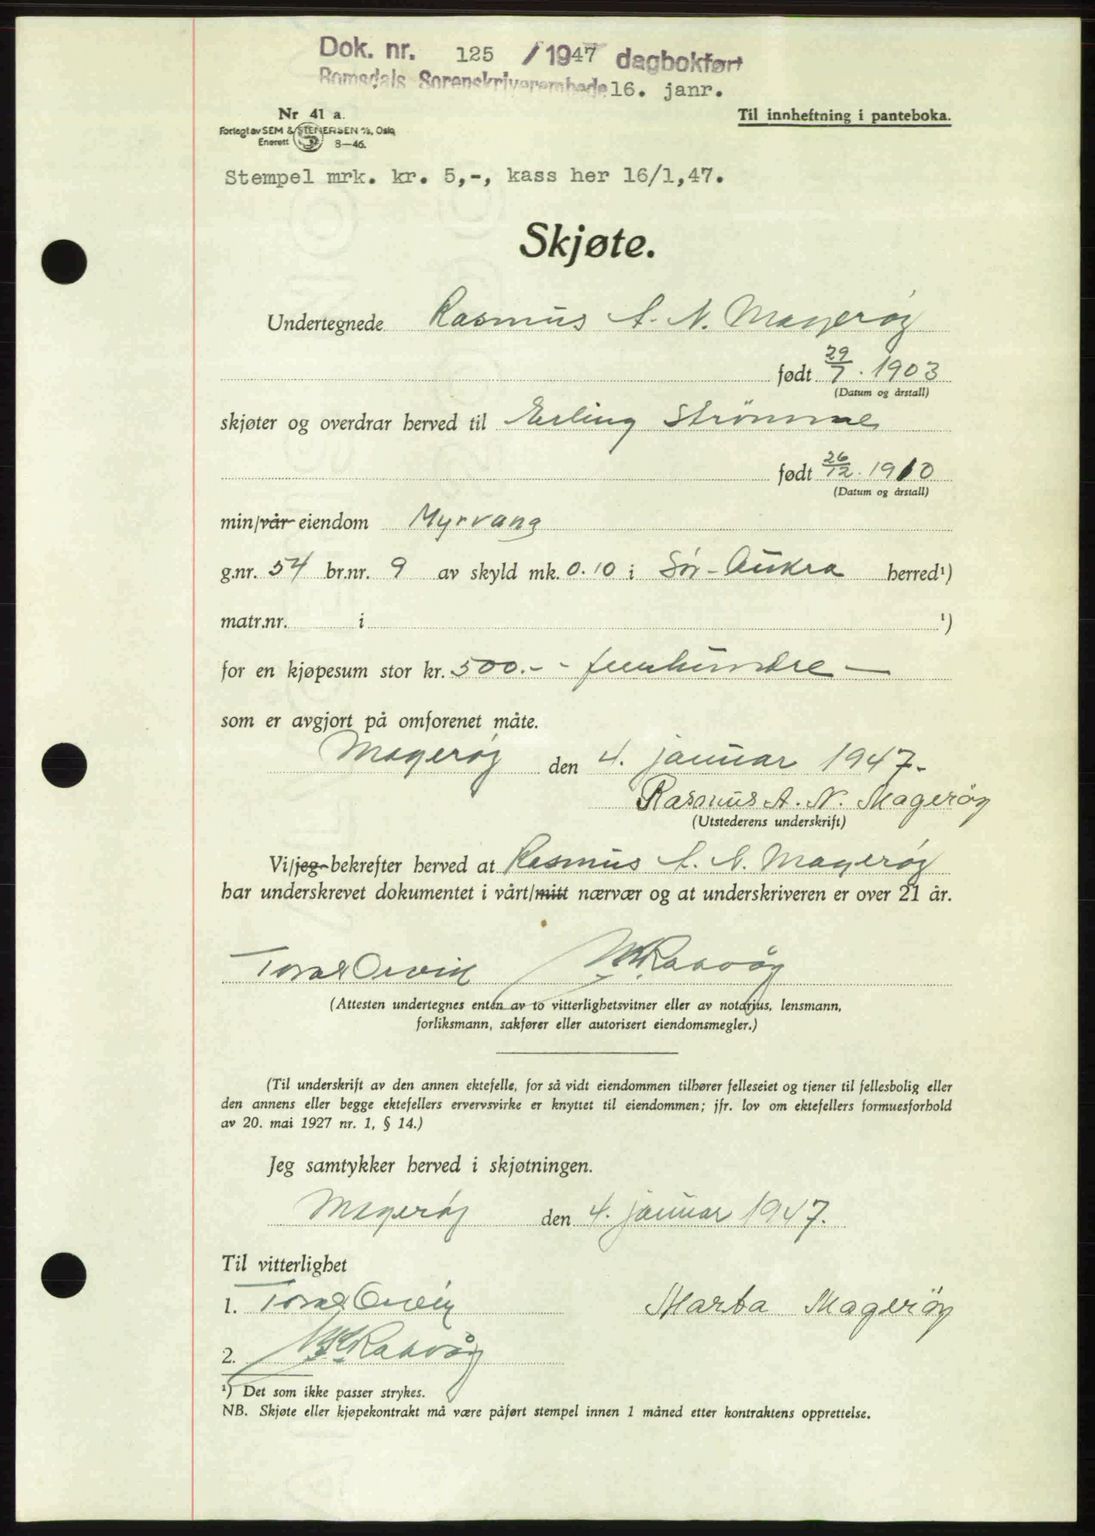 Dok. nr. 125 / 1947 dagbokført
Romsdals Sorenskriverembede 16. janr.
Nr 41 a.
Til innheftning i panteboka.
Forlagt av SEM & STENERSEN A/S, Oslo
Enerett 8—46.
Stempel mrk. kr. 5,-, kass her 16/1,47.
Skjøte.
Undertegnede Rasmus A. N. Magerøy
født 29/7. 1903
(Datum og årstall)
skjøter og overdrar herved til Erling Strømme
født 26/12. 1910
(Datum og årstall)
min/vår eiendom Myrvang
g.nr. 54 br.nr. 9 av skyld mk. 0.10 i Sør-Aukra herred¹)
matr.nr. i ¹)
for en kjøpesum stor kr. 500.- - femhundre —
som er avgjort på omforenet måte.
Magerøy den 4. januar 1947.
Rasmus A. N. Magerøy
(Utstederens underskrift)
Vi/jeg bekrefter herved at Rasmus A. N. Magerøy
har underskrevet dokumentet i vårt/mitt nærvær og at underskriveren er over 21 år.
(Attesten undertegnes enten av to vitterlighetsvitner eller av notarius, lensmann,
forliksmann, sakfører eller autorisert eiendomsmegler.)
(Til underskrift av den annen ektefelle, for så vidt eiendommen tilhører felleseiet og tjener til fellesbolig eller
den annens eller begge ektefellers ervervsvirke er knyttet til eiendommen; jfr. lov om ektefellers formuesforhold
av 20. mai 1927 nr. 1, § 14.)
Jeg samtykker herved i skjøtningen.
Magerøy den 4. januar 1947.
Til vitterlighet
1. Marta Magerøy
2.
¹) Det som ikke passer strykes.
NB. Skjøte eller kjøpekontrakt må være påført stempel innen 1 måned etter kontraktens opprettelse.